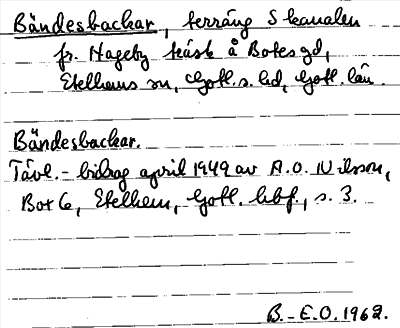 Bändesbackar, terräng S kanalen
fr. Hageby träsk å Botes gd,
Etelhems sn, Gotl. s. hd, Gotl. län.
Bändesbackar.
Tävl.-bidrag april 1949 av A.O. Nilsson,
Box 6, Etelhem, Gotl. hbf., s. 3.
B.-E.O. 1962.